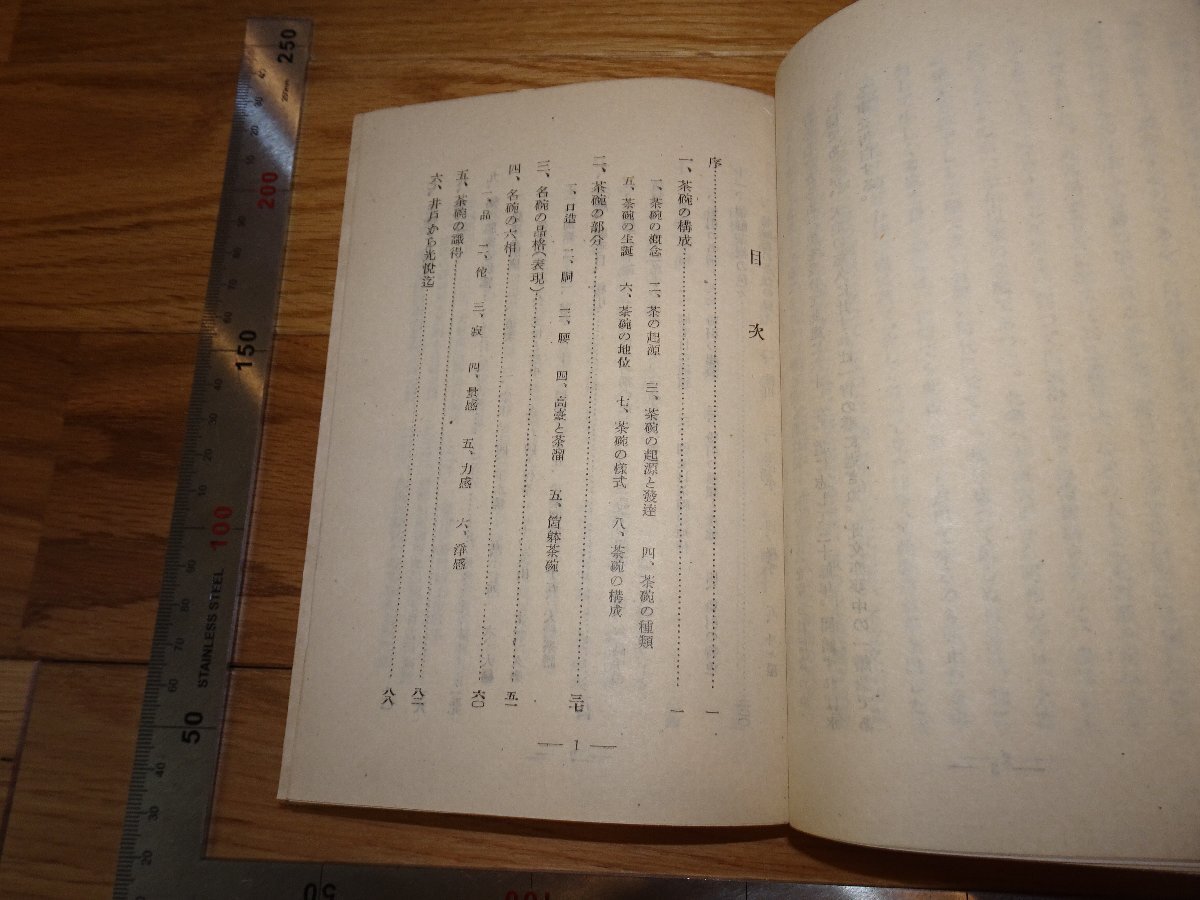 目次
序 一
一、茶碗の構成 一
一、茶碗の概念 二、茶の起源 三、茶碗の起源と發達 四、茶碗の種類
五、茶碗の生誕 六、茶碗の地位 七、茶碗の樣式 八、茶碗の構成
二、茶碗の部分 三七
一、口造 二、胴 三、腰 四、高臺と茶溜 五、筒躰茶碗
三、名碗の品格(表現) 五一
四、名碗の六相 六〇
一、品 二、侘 三、寂 四、量感 五、力感 六、淨感
五、茶碗の識得 八二
六、井戸から光悅迄 八六
— 1 —
STAINLESS STEEL
50
100
150
200
250
50
100